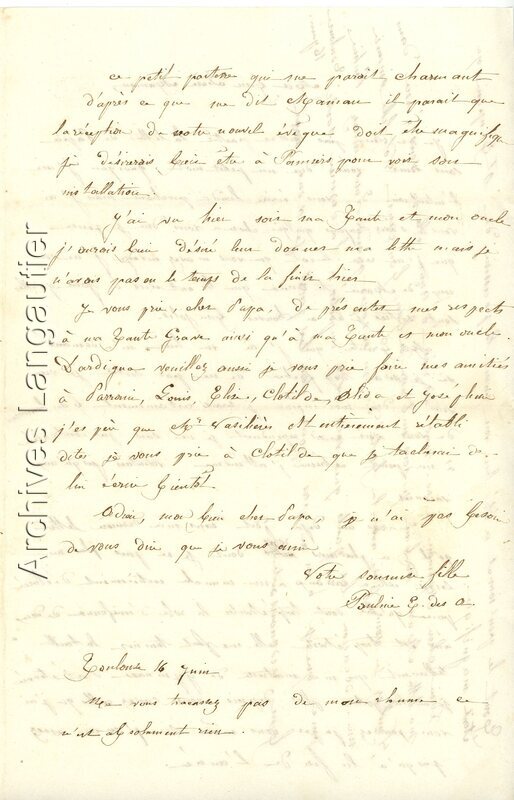 ce petit parterre qui me paraît charmant
d'après ce que me dit Maman il parait que
la réception de notre nouvel évêque doit être magnifique
je désirerais bien être à Pamiers pour voir son
installation.
J'ai vu hier soir ma Tante et mon oncle
j'aurais bien désiré leur donner ma lettre mais je
n'avais pas eu le temps de la finir hier
Je vous prie, cher Papa, de présenter mes respects
à ma Tante Grave ainsi qu'à ma Tante et mon oncle
Dardigna veuillez aussi je vous prie faire mes amitiés
à Louis, Elise, Clotilde, Olida et Joséphine
j'espère que Mr Vasilières est entièrement rétabli
dites je vous prie à Clotilde que je tacherai de
lui écrire bientôt
Adieu, mon bien cher Papa, je n'ai pas besoin
de vous dire que je vous aime
Votre soumise fille
Pauline G. des A.
Toulouse 16 juin
Ne vous tracassez pas de mon rhume ce
n'est absolument rien.
Archives Langautier